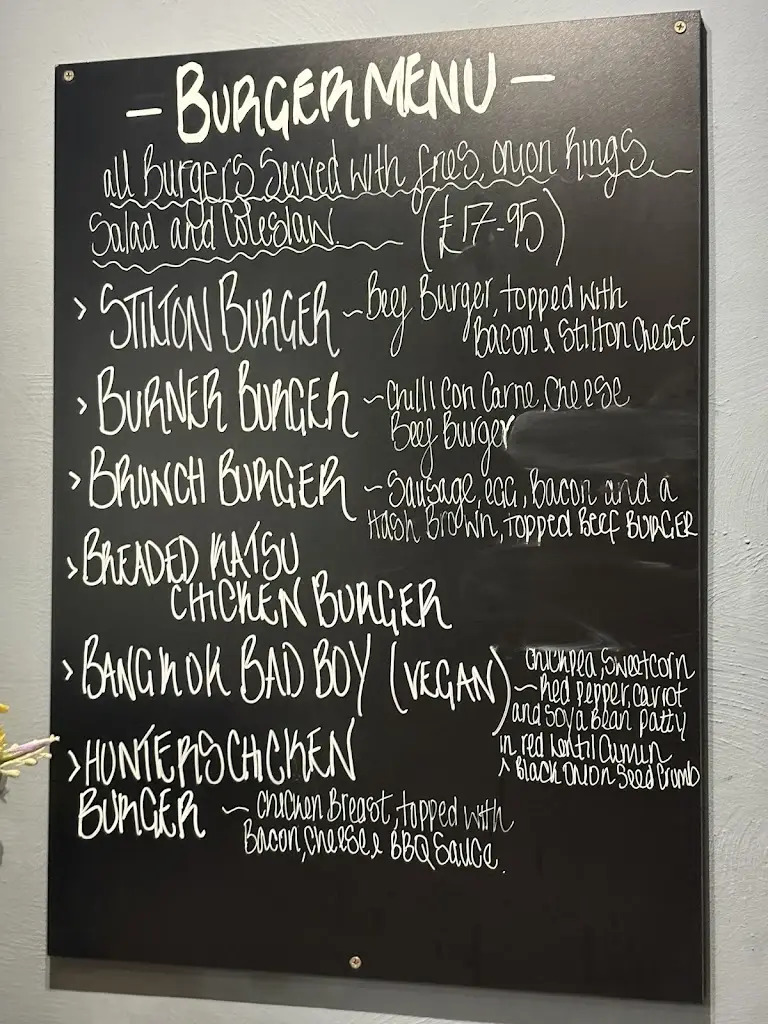 - BURGER MENU -
all Burgers Served with fries, onion Rings,
Salad and Coleslaw. (£17-95)
> STILTON BURGER ~ Beef Burger, topped with
Bacon & Stilton Cheese
> BURNER BURGER ~ Chilli Con Carne, Cheese
Beef Burger
> BRUNCH BURGER ~ Sausage, egg, Bacon and a
Hash Brown, topped Beef BURGER
> BREADED KATSU
CHICKEN BURGER
> BANGKOK BAD BOY (VEGAN) ~ Chickpea, Sweetcorn
Red pepper, carrot
and Soya Bean patty
in red lentil Cumin
& Black Onion Seed Crumb
> HUNTERS CHICKEN
BURGER ~ Chicken Breast, topped with
Bacon, Cheese & BBQ Sauce.